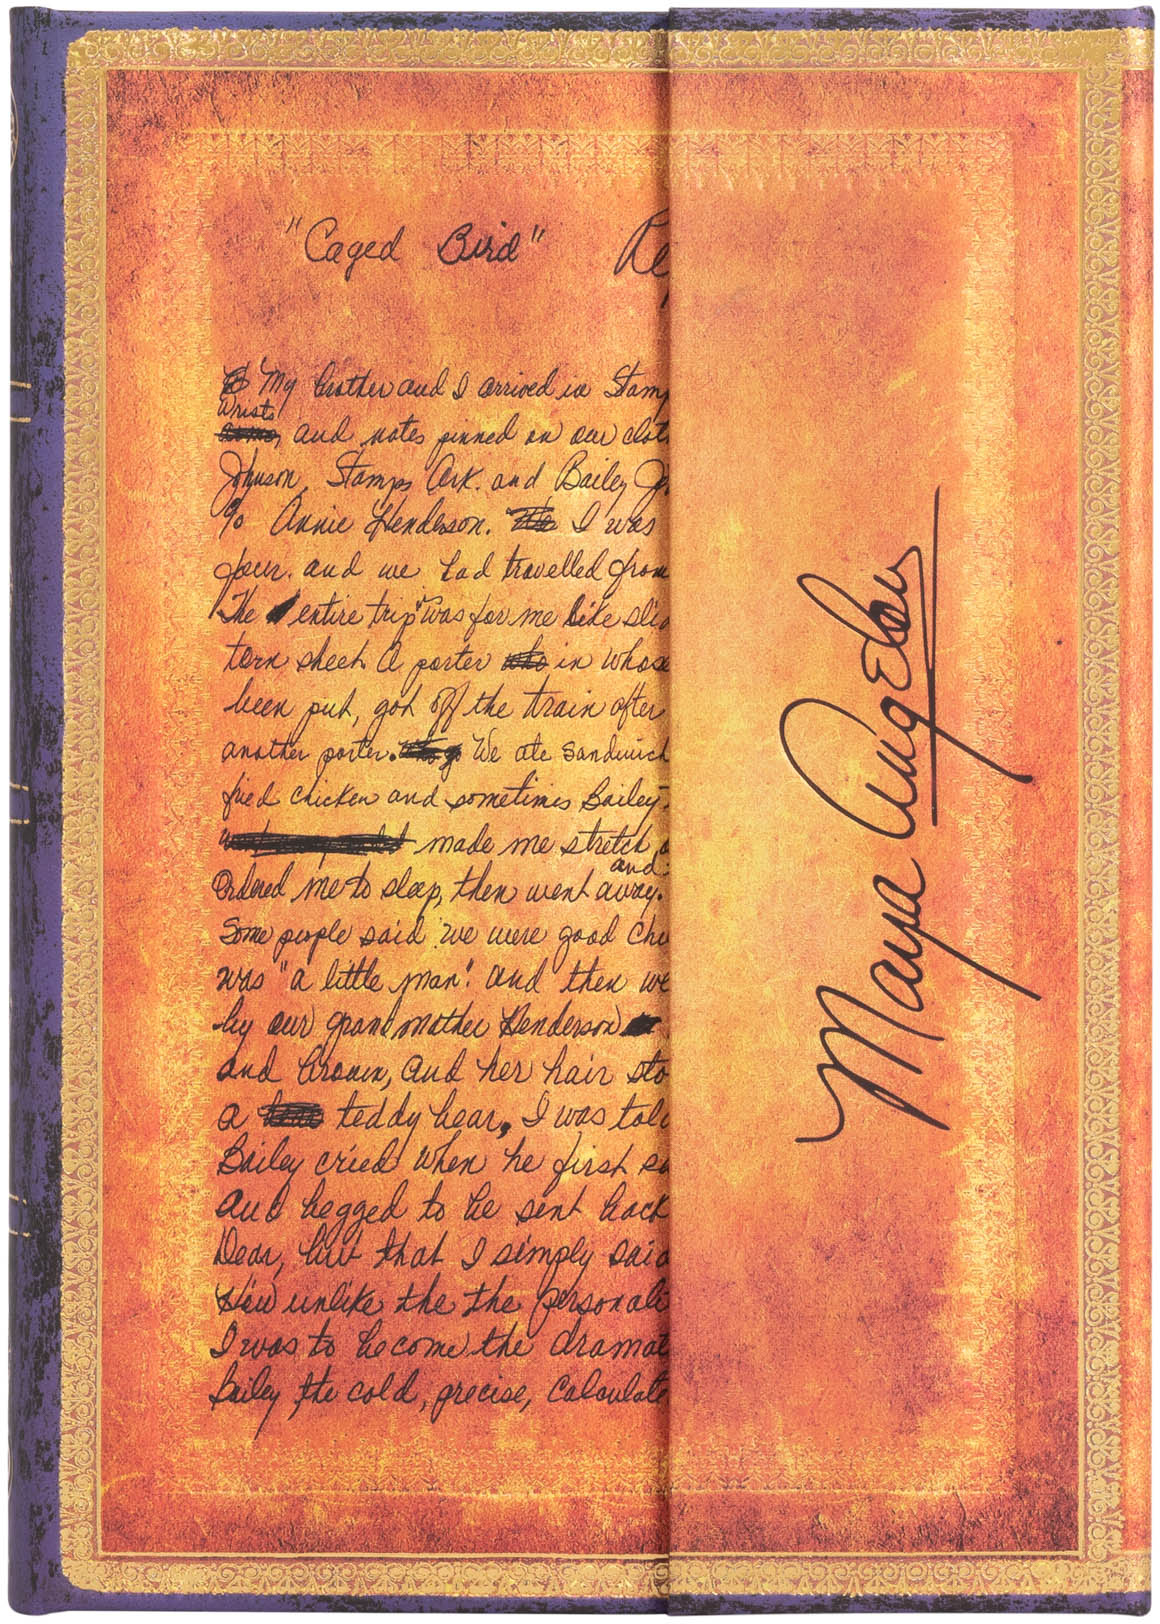 "Caged Bird" Re
My brother and I arrived in Stam
wrists
and notes pinned on our clot
Johnson, Stamps Ark. and Bailey Jo
c/o Annie Henderson. I was
four. and we had travelled from
The entire trip was for me like slid
torn sheet. A porter in whose
been put, got off the train after
another porter. We ate sandwich
fried chicken and sometimes Bailey
made me stretch
and
ordered me to sleep, then went away.
Some people said we were good chi
was "a little man." and then we
by our grandmother Henderson
and brown, and her hair sto
a teddy bear, I was told
Bailey cried when he first sa
and begged to be sent back
Dear, but that I simply said
How unlike the the personali
I was to become the dramat
Bailey the cold, precise, calculate
Maya Angelou